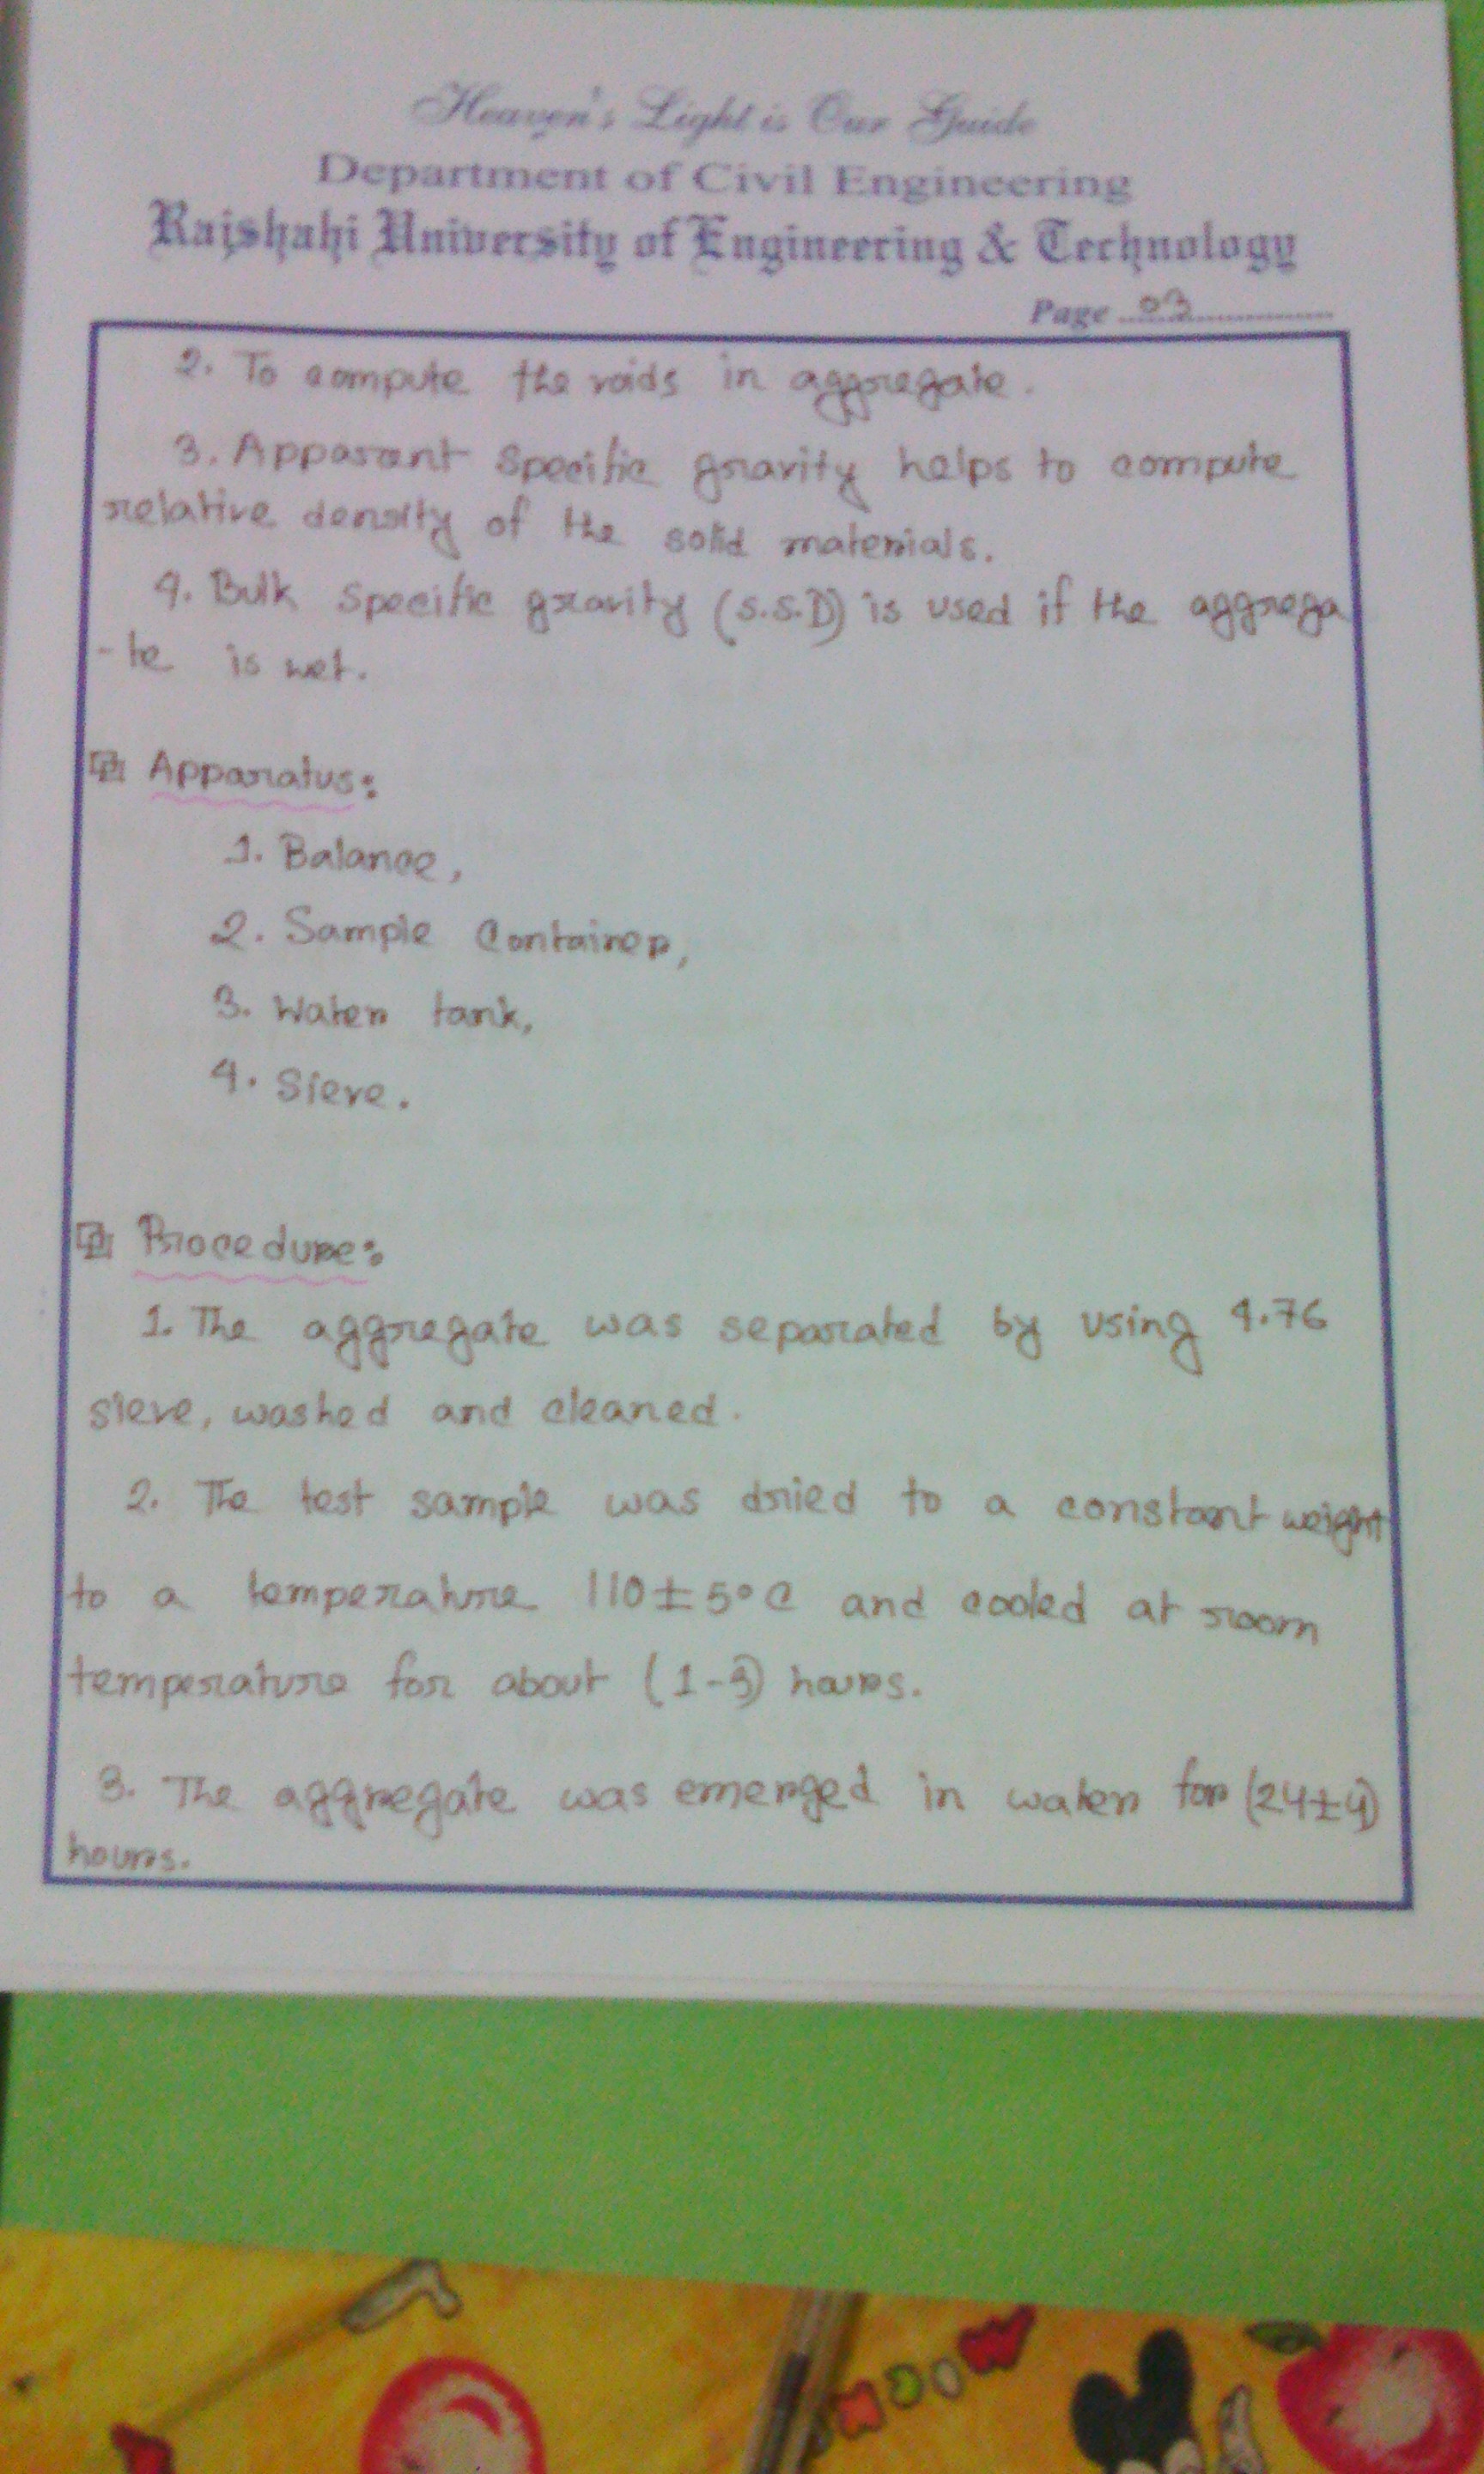 Heaven's Light is Our Guide
Department of Civil Engineering
Rajshahi University of Engineering & Technology
Page 03
2. To compute the voids in aggregate.
3. Apparant specific gravity helps to compute
relative density of the solid materials.
4. Bulk specific gravity (S.S.D) is used if the aggrega
-te is wet.
Apparatus:
1. Balance,
2. Sample Container,
3. Water tank,
4. Sieve.
Procedure:
1. The aggregate was separated by using 4.76
sieve, washed and cleaned.
2. The test sample was dried to a constant weight
to a temperature 110±5°C and cooled at room
temperature for about (1-3) hours.
3. The aggregate was emerged in water for (24±4)
hours.